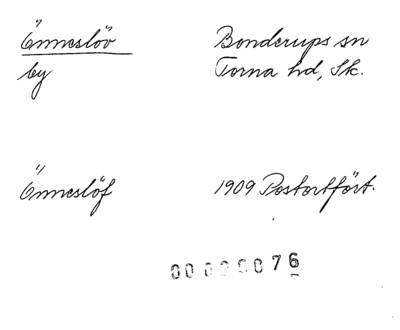 Önneslöv
by
Bonderups sn
Torna hd, Sk.
Önneslöf
1909 Postortfört.